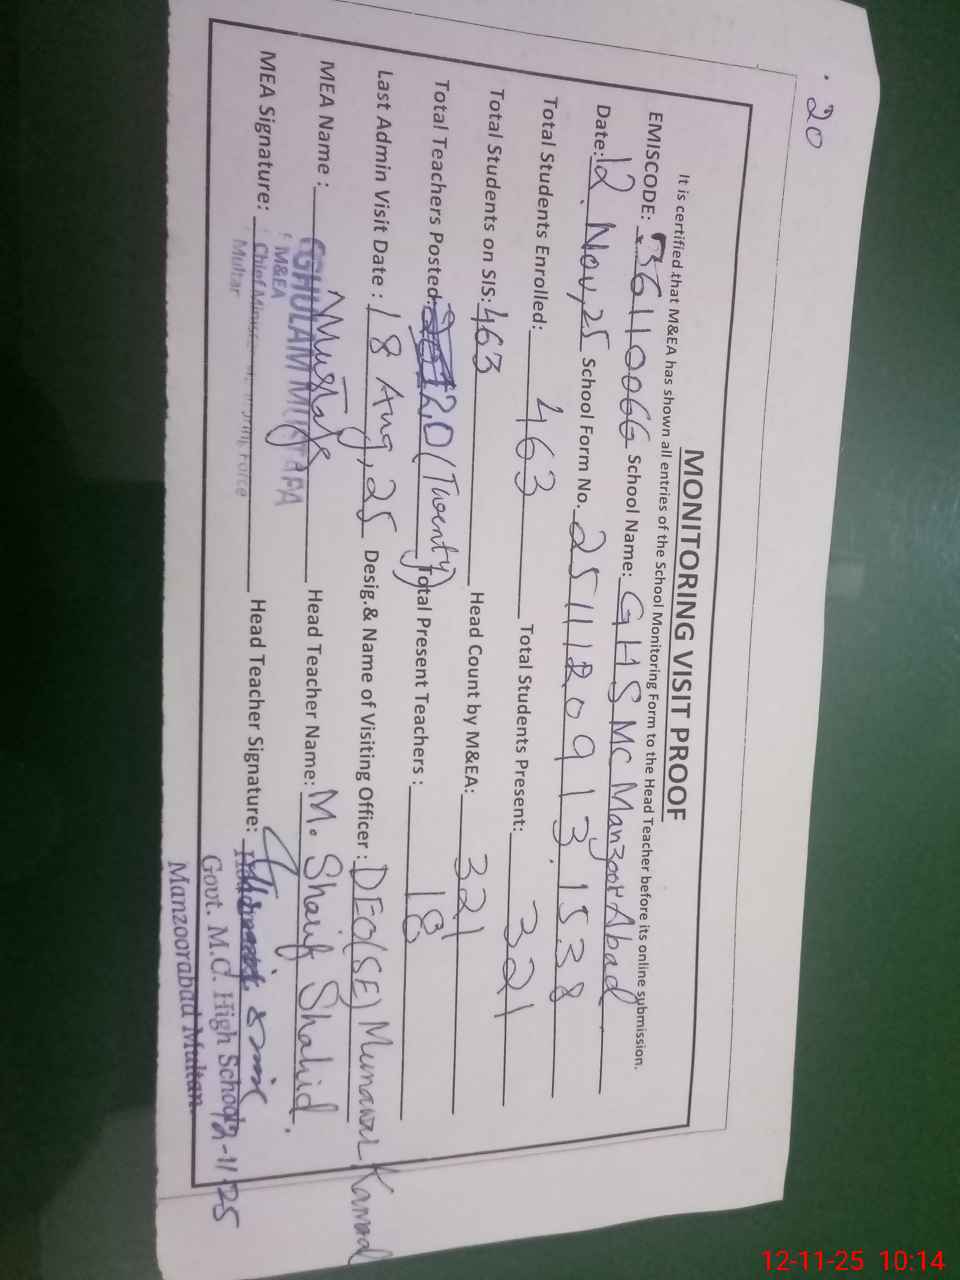 . 20
MONITORING VISIT PROOF
It is certified that M&EA has shown all entries of the School Monitoring Form to the Head Teacher before its online submission.
EMISCODE: 36110066 School Name: GHS MC Manzoor Abad
Date: 12. Nov, 25 School Form No. 25112.0913.1538
Total Students Enrolled: 463 Total Students Present: 321
Total Students on SIS: 463 Head Count by M&EA: 321
Total Teachers Posted: 20 (Twenty) Total Present Teachers : 18
Last Admin Visit Date : 18 Aug, 25 Desig.& Name of Visiting Officer : DEO(SE) Munawar Kamal
MEA Name : Mustafa Head Teacher Name: M. Sharif Shahid.
GHULAM MUSTAFA
M&EA
MEA Signature: Chief Minister Monitoring Force Head Teacher Signature:
Multan
Govt. M.C. High School
Manzoorabad Multan.
12-11-25
12-11-25 10:14